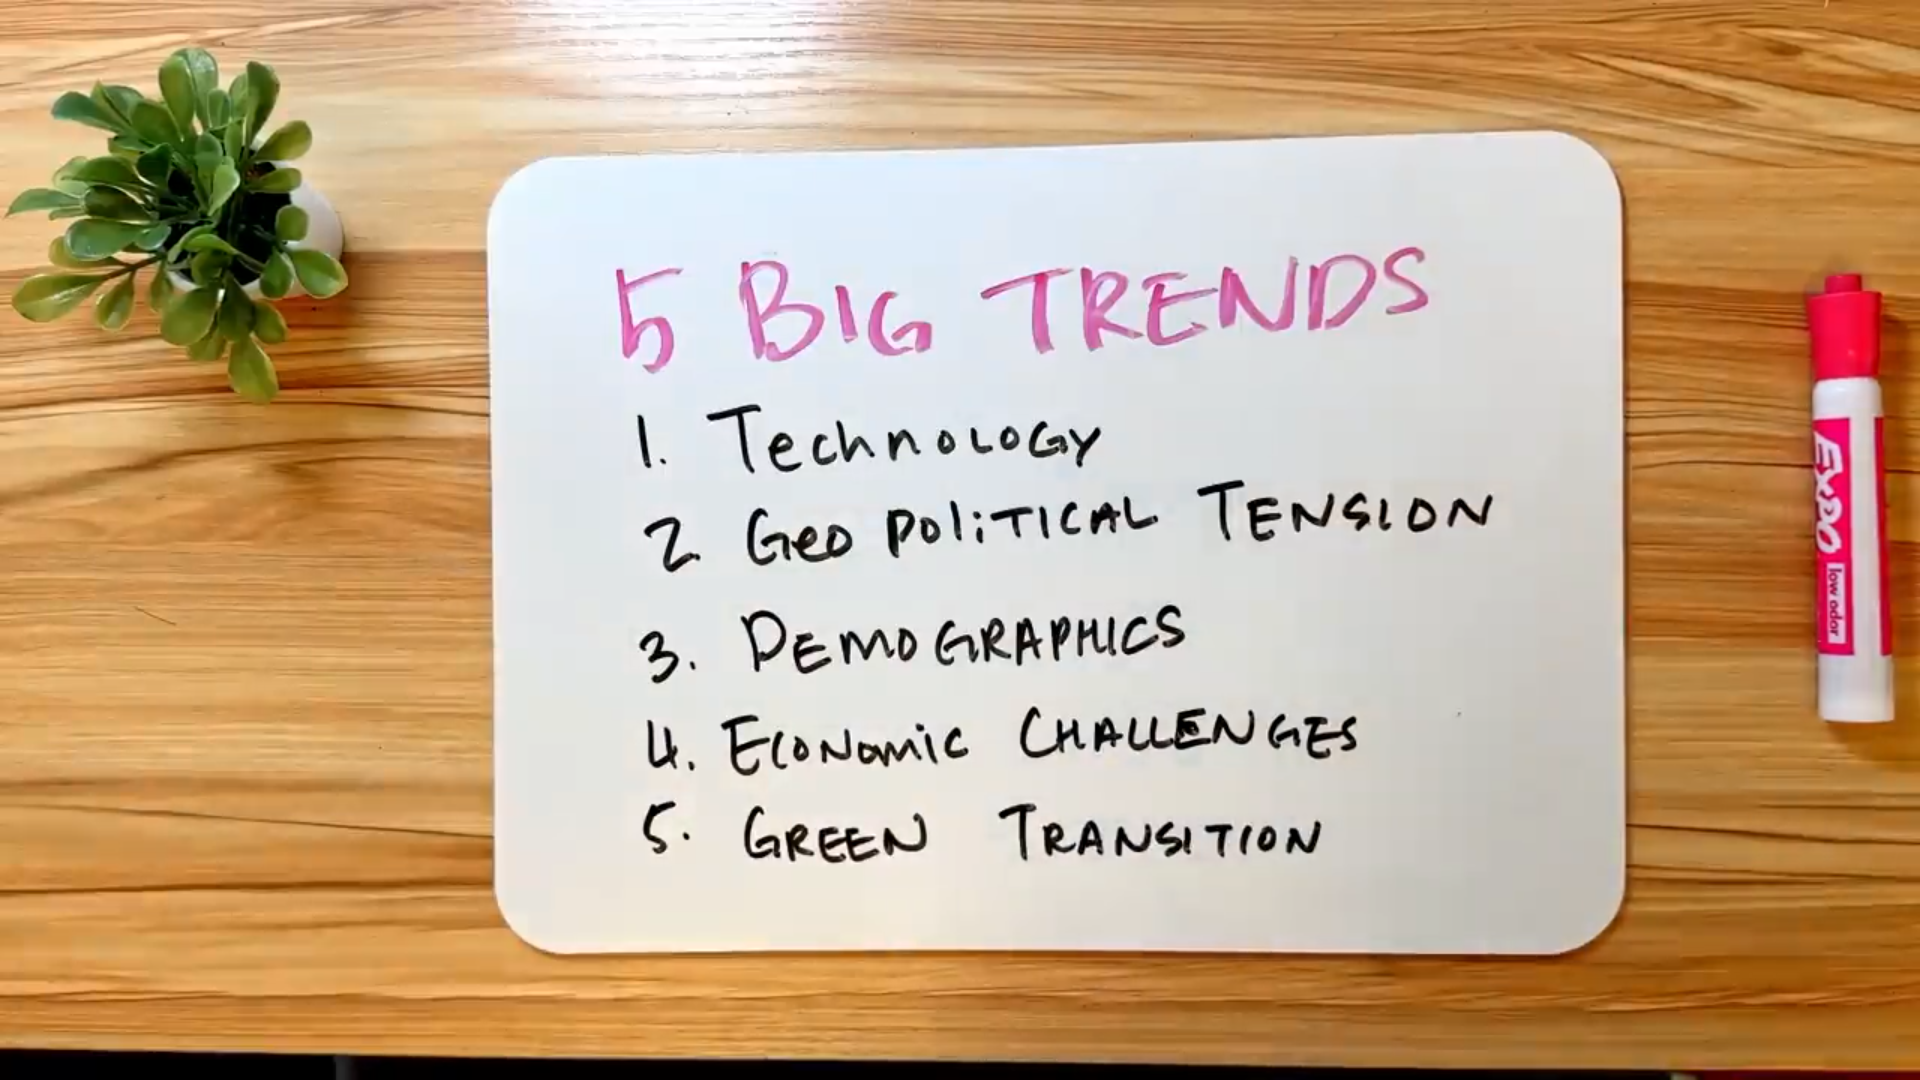 5 BIG TRENDS
1. Technology
2. Geo political TENSION
3. DEMOGRAPHICS
4. Economic CHALLENGES
5. GREEN TRANSITION
EXPO
low odor